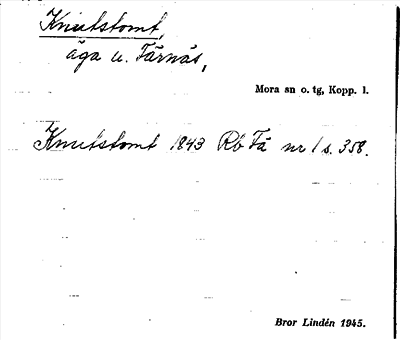 Knutstomt,
äga u. Färnäs,
Mora sn o. tg, Kopp. l.
Knutstomt 1843 Rb Fä nr 1 s. 358.
Bror Lindén 1945.